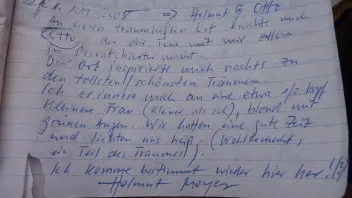 → Helmut & Otto
An diesen traumhaften Ort brachte mich
Otto, der die Tour mit mir
im Privatkarter macht.
Der Ort inspirierte mich nachts zu
den tollsten/schönsten Träumen.
Ich erinnere mich an eine etwa 1/2 kopf
kleinere Frau (kleiner als ich), blond mit
grünen Augen. Wir hatten eine gute Zeit
und liebten uns heiß. (Wohlgemerkt,
ein Teil des Traumes!).
Ich komme bestimmt wieder hier her!
Helmut Meyer